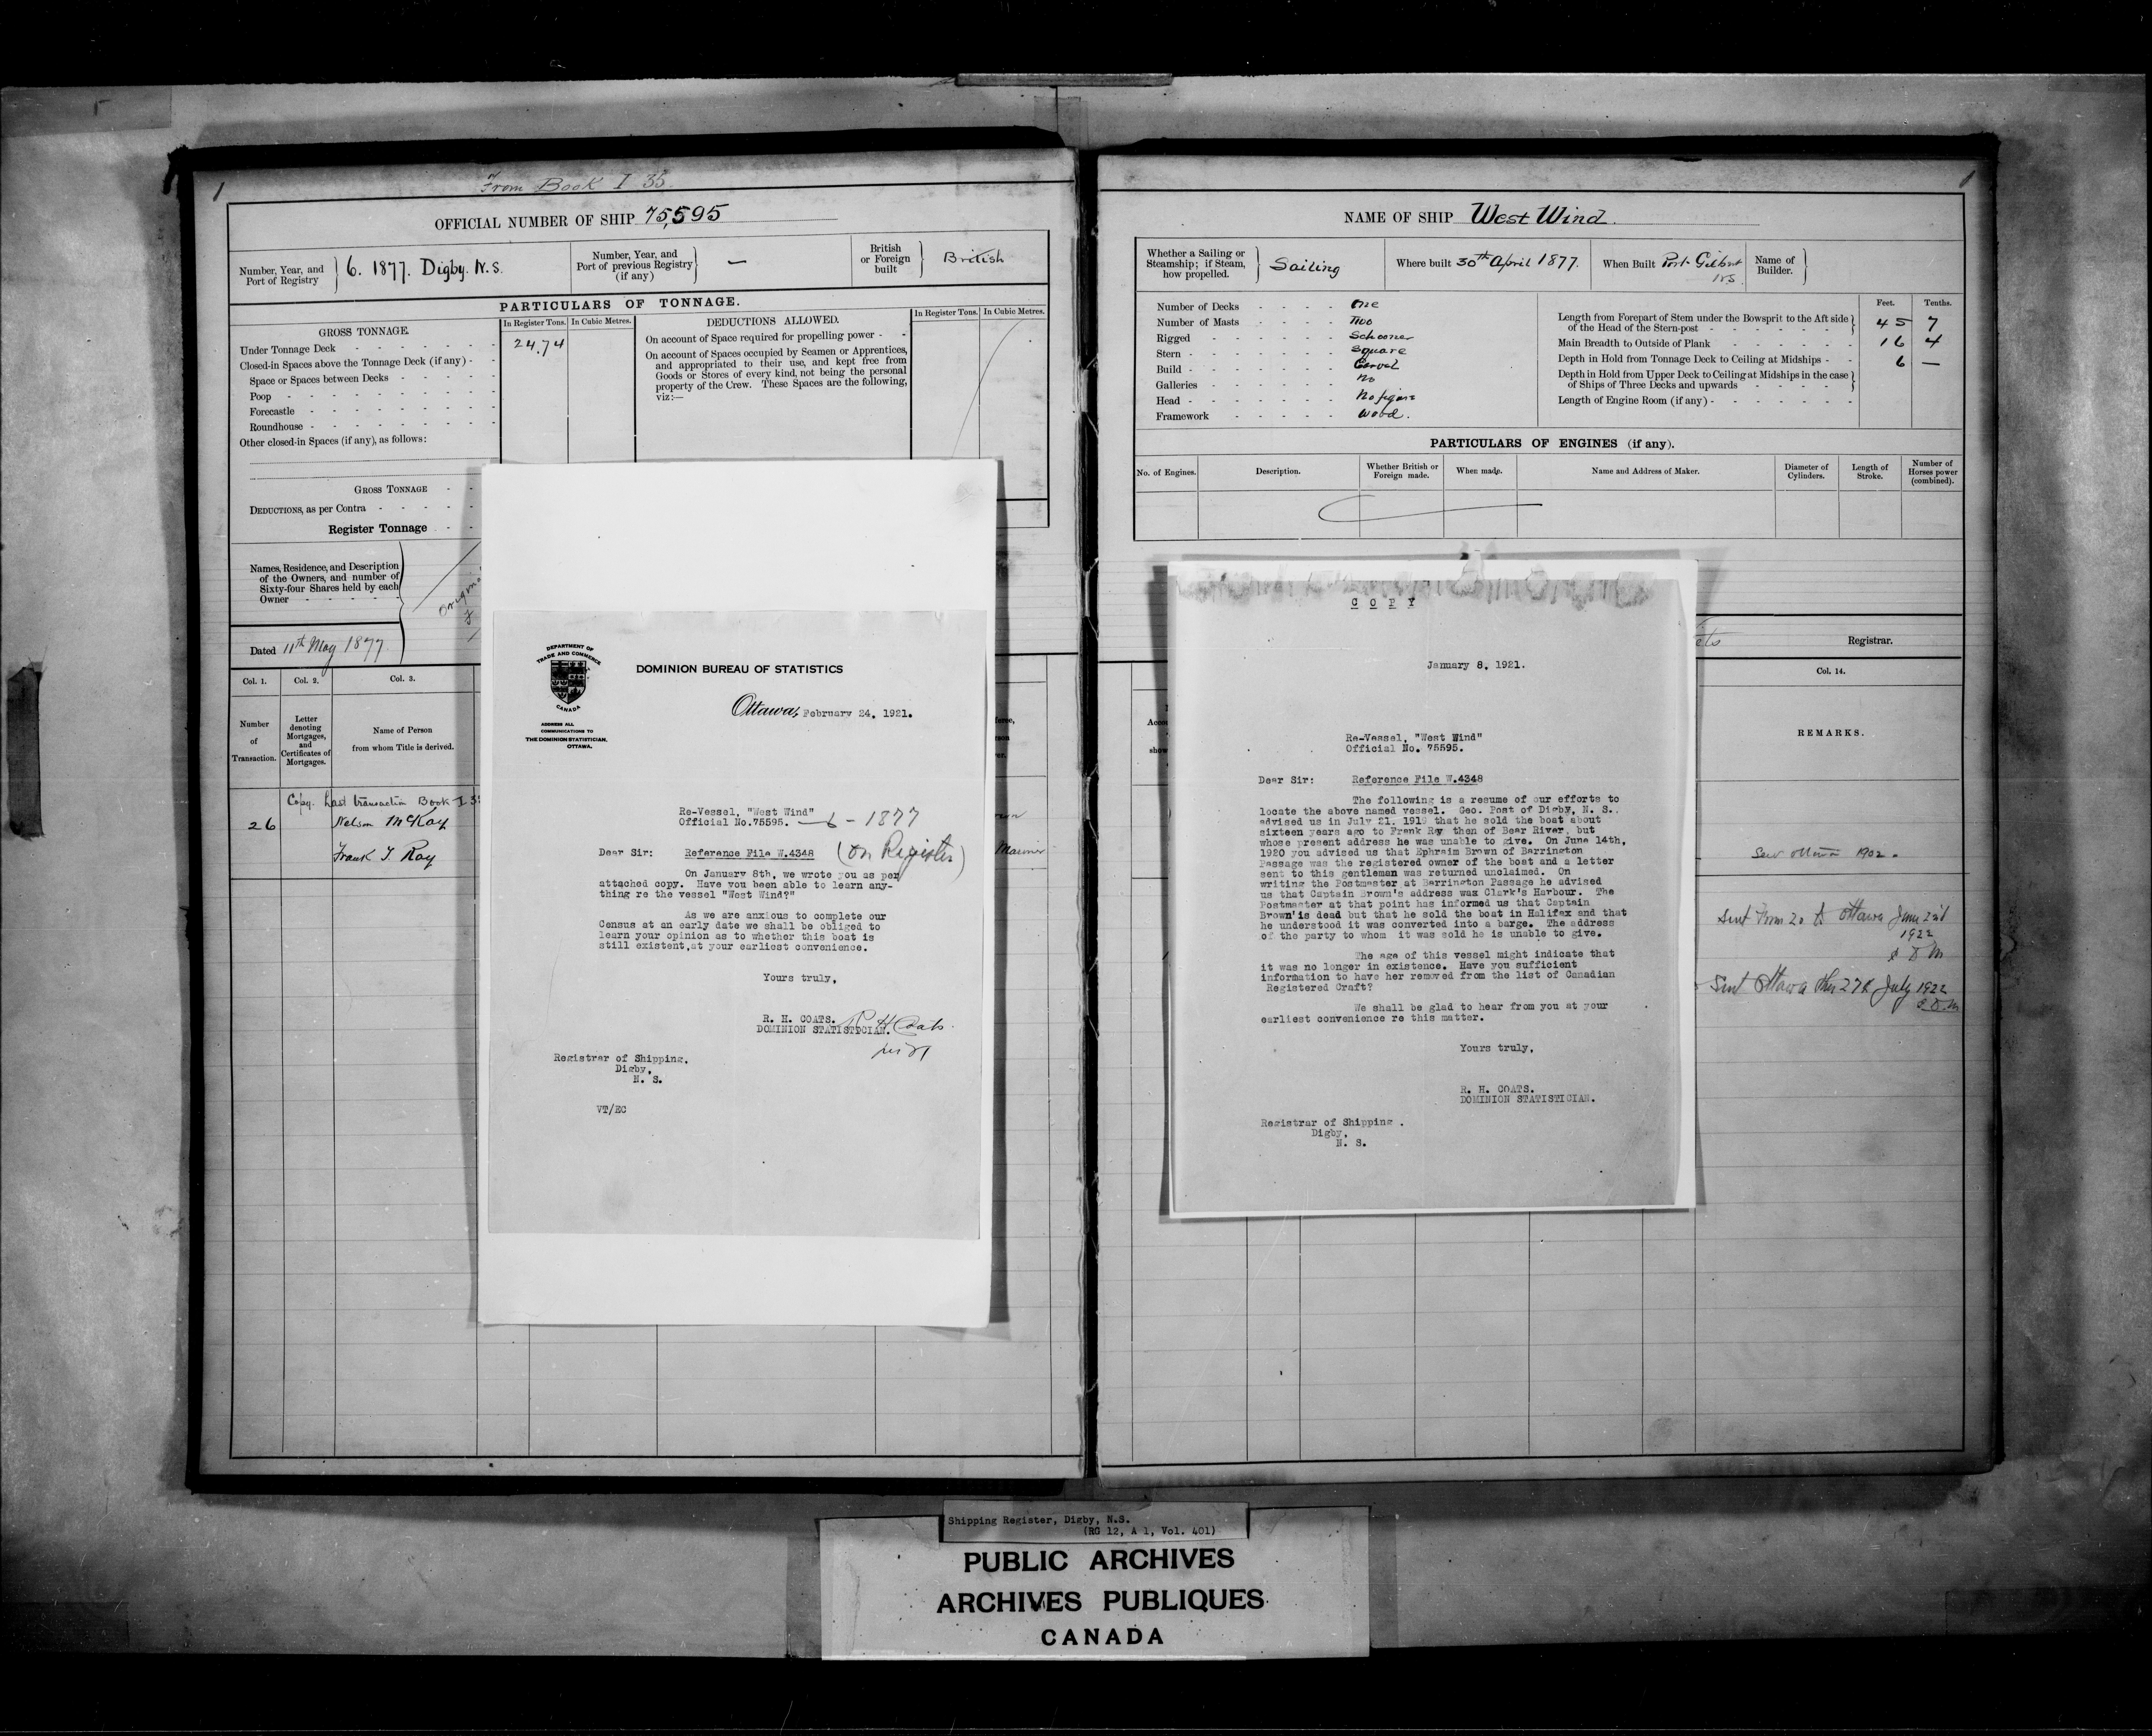 1
From Book I 35
OFFICIAL NUMBER OF SHIP 75,595
Number, Year, and Port of Registry } 6. 1877. Digby. N.S.
Number, Year, and Port of previous Registry (if any) } —
British or Foreign built } British
PARTICULARS OF TONNAGE.
GROSS TONNAGE.
In Register Tons. In Cubic Metres.
DEDUCTIONS ALLOWED.
In Register Tons. In Cubic Metres.
Under Tonnage Deck - - - - - - 24.74
Closed-in Spaces above the Tonnage Deck (if any) - -
Space or Spaces between Decks - - - - -
Poop - - - - - - - - -
Forecastle - - - - - - - -
Roundhouse - - - - - - - -
Other closed-in Spaces (if any), as follows:
On account of Space required for propelling power - -
On account of Spaces occupied by Seamen or Apprentices,
and appropriated to their use, and kept free from
Goods or Stores of every kind, not being the personal
property of the Crew. These Spaces are the following,
viz:—
GROSS TONNAGE - -
DEDUCTIONS, as per Contra - - - - -
Register Tonnage - -
Names, Residence, and Description
of the Owners, and number of
Sixty-four Shares held by each
Owner - - - - -
Dated 11th May 1877
Col. 1. Col. 2. Col. 3.
Number of Transaction.
Letter denoting Mortgages, and Certificates of Mortgages.
Name of Person from whom Title is derived.
Copy. Last transaction Book I 35
26 Nelson McKay
Frank J. Ray
Mariner
DEPARTMENT OF
TRADE AND COMMERCE
CANADA
ADDRESS ALL
COMMUNICATIONS TO
THE DOMINION STATISTICIAN.
OTTAWA.
DOMINION BUREAU OF STATISTICS
Ottawa, February 24, 1921.
Re-Vessel, "West Wind"
Official No.75595. — 6 - 1877
Dear Sir: Reference File W.4348 (on Register)
On January 8th, we wrote you as per
attached copy. Have you been able to learn any-
thing re the vessel "West Wind?"
As we are anxious to complete our
Census at an early date we shall be obliged to
learn your opinion as to whether this boat is
still existent,at your earliest convenience.
Yours truly,
R. H. COATS. R H Coats.
DOMINION STATISTICIAN.
Registrar of Shipping.
Digby,
N. S.
VT/EC
1
NAME OF SHIP West Wind.
Whether a Sailing or Steamship; if Steam, how propelled. } Sailing
Where built 30th April 1877.
When Built Port Gilbert N.S.
Name of Builder. }
Number of Decks - - - - One
Number of Masts - - - - Two
Rigged - - - - - - Schooner
Stern - - - - - - Square
Build - - - - - - Carvel
Galleries - - - - - - No
Head - - - - - - No figure
Framework - - - - - Wood.
Feet. Tenths.
Length from Forepart of Stem under the Bowsprit to the Aft side
of the Head of the Stern-post - - - - - - 45 7
Main Breadth to Outside of Plank - - - - - 16 4
Depth in Hold from Tonnage Deck to Ceiling at Midships - - 6 —
Depth in Hold from Upper Deck to Ceiling at Midships in the case
of Ships of Three Decks and upwards - - - - -
Length of Engine Room (if any) - - - - - -
PARTICULARS OF ENGINES (if any).
No. of Engines. Description. Whether British or Foreign made. When made. Name and Address of Maker. Diameter of Cylinders. Length of Stroke. Number of Horses power (combined).
Registrar.
Col. 14.
REMARKS.
1902.
Sent Form 20 to Ottawa June 22d
1922
Sent Ottawa July 1922
COPY
January 8, 1921.
Re-Vessel, "West Wind"
Official No. 75595.
Dear Sir: Reference File W.4348
The following is a resume of our efforts to
locate the above named vessel. Geo. Post of Digby, N. S..
advised us in July 21. 1919 that he sold the boat about
sixteen years ago to Frank Ray then of Bear River, but
whose present address he was unable to give. On June 14th,
1920 you advised us that Ephraim Brown of Barrington
Passage was the registered owner of the boat and a letter
sent to this gentleman was returned unclaimed. On
writing the Postmaster at Barrington Passage he advised
us that Captain Brown's address wax Clark's Harbour. The
Postmaster at that point has informed us that Captain
Brown'is dead but that he sold the boat in Halifax and that
he understood it was converted into a barge. The address
of the party to whom it was sold he is unable to give.
The age of this vessel might indicate that
it was no longer in existence. Have you sufficient
information to have her removed from the list of Canadian
Registered Craft?
We shall be glad to hear from you at your
earliest convenience re this matter.
Yours truly,
R. H. COATS.
DOMINION STATISTICIAN.
Registrar of Shipping .
Digby,
N. S.
Shipping Register, Digby, N.S.
(RG 12, A 1, Vol. 401)
PUBLIC ARCHIVES
ARCHIVES PUBLIQUES
CANADA